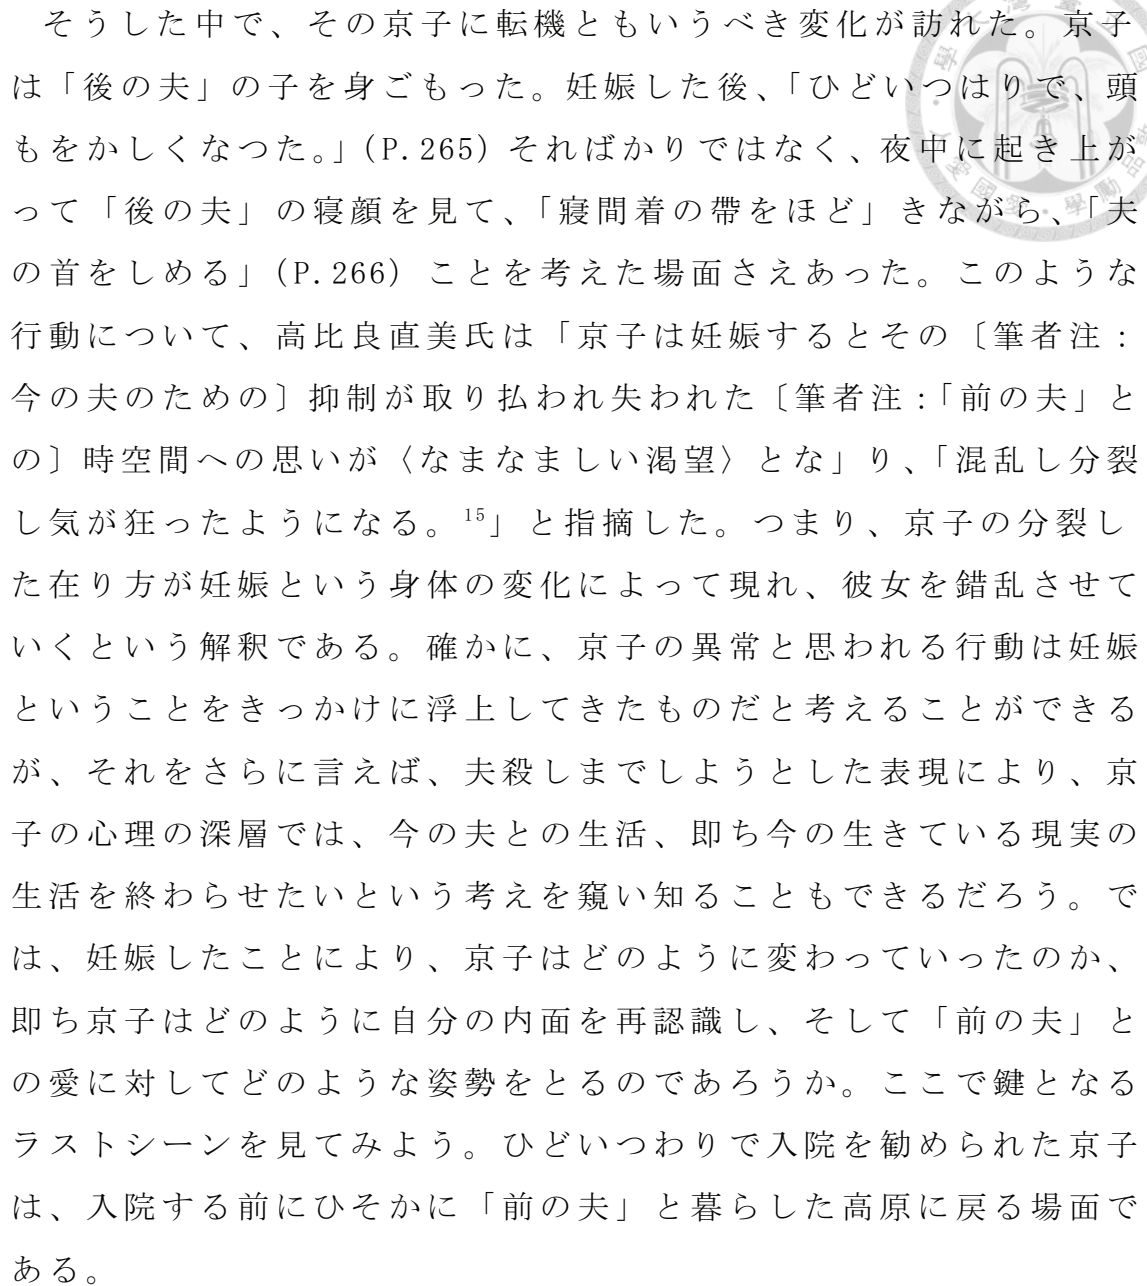 そうした中で、その京子に転機ともいうべき変化が訪れた。京子
は「後の夫」の子を身ごもった。妊娠した後、「ひどいつはりで、頭
もをかしくなつた。」(P.265) そればかりではなく、夜中に起き上が
って「後の夫」の寝顔を見て、「寢間着の帶をほど」きながら、「夫
の首をしめる」(P.266) ことを考えた場面さえあった。このような
行動について、高比良直美氏は「京子は妊娠するとその〔筆者注：
今の夫のための〕抑制が取り払われ失われた〔筆者注:「前の夫」と
の〕時空間への思いが〈なまなましい渇望〉とな」り、「混乱し分裂
し気が狂ったようになる。15」と指摘した。つまり、京子の分裂し
た在り方が妊娠という身体の変化によって現れ、彼女を錯乱させて
いくという解釈である。確かに、京子の異常と思われる行動は妊娠
ということをきっかけに浮上してきたものだと考えることができる
が、それをさらに言えば、夫殺しまでしようとした表現により、京
子の心理の深層では、今の夫との生活、即ち今の生きている現実の
生活を終わらせたいという考えを窺い知ることもできるだろう。で
は、妊娠したことにより、京子はどのように変わっていったのか、
即ち京子はどのように自分の内面を再認識し、そして「前の夫」と
の愛に対してどのような姿勢をとるのであろうか。ここで鍵となる
ラストシーンを見てみよう。ひどいつわりで入院を勧められた京子
は、入院する前にひそかに「前の夫」と暮らした高原に戻る場面で
ある。